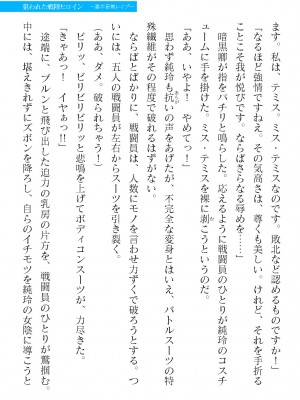 狙われた戦闘ヒロイン
ます。私は、テミス。ミス・テミスなのです。敗北など認めるものですか！」
「なるほど強情ですねえ。その気高さは、尊くも美しい。けれど、それを手折る
ことこそ我が悦びです。ならばさらなる辱めを……」
　暗黒卿が指をパチリと鳴らした。応えるように戦闘員のひとりが純玲のコスチ
ュームに手を掛けた。ミス・テミスを裸に剥こうというのだ。
「あっ、いやよ！　やめてっ！」
　思わず純玲も抗いの声をあげたが、不完全な変身とはいえ、バトルスーツの特
殊繊維がその程度で破れるはずがない。
　ならばとばかりに、戦闘員は、人数にモノを言わせ力ずくで破ろうとする。つ
いには、五人の戦闘員が左右からスーツを引き裂く。
（ああ、ダメ。破られちゃうっ！）
　ビリッ、ビリビリビリッと悲鳴を上げてボディコンスーツが、力尽きた。
「きゃあっ！　イヤぁっ!!」
　途端に、ブルンと飛び出した迫力の乳房の片方を、戦闘員のひとりが鷲掴む。
中には、堪えきれずにズボンを降ろし、自らのイチモツを純玲の女陰に導こうと